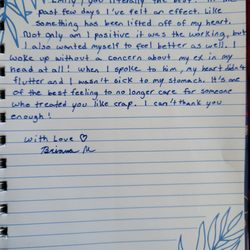 Emily, you literally the best.
past few days I've felt an effect. Like
something has been lifted off of my heart.
Not only am I positive it was the working, but
I also wanted myself to feel better as well. I
woke up without a concern about my ex in my
head at all! when I spoke to him, my heart didn't
flutter and I wasn't sick to my stomach. It's one
of the best feeling to no longer care for someone
who treated you like crap. I can't thank you
enough!
with Love ♡
Briana M